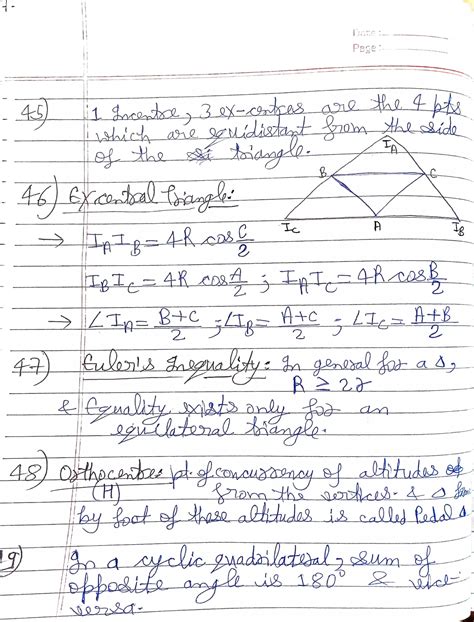 Date :
Page :
45) 1 Incentre, 3 ex-centres are the 4 pts
which are equidistant from the side
of the triangle.
I_A
B
C
I_C
A
I_B
46) Excentral Triangle:
→ I_A I_B = 4R cos C/2
I_B I_C = 4R cos A/2 ; I_A I_C = 4R cos B/2
→ ∠I_A = B+C/2 ; ∠I_B = A+C/2 ; ∠I_C = A+B/2
47) Euler's Inequality: In general for a Δ,
R ≥ 2r
& Equality exists only for an
equilateral triangle.
48) Orthocentre: pt. of concurrency of altitudes
(H) from the vertices. & Δ
by foot of these altitudes is called Pedal Δ
9) In a cyclic quadrilateral, sum of
opposite angle is 180° & vice
versa.